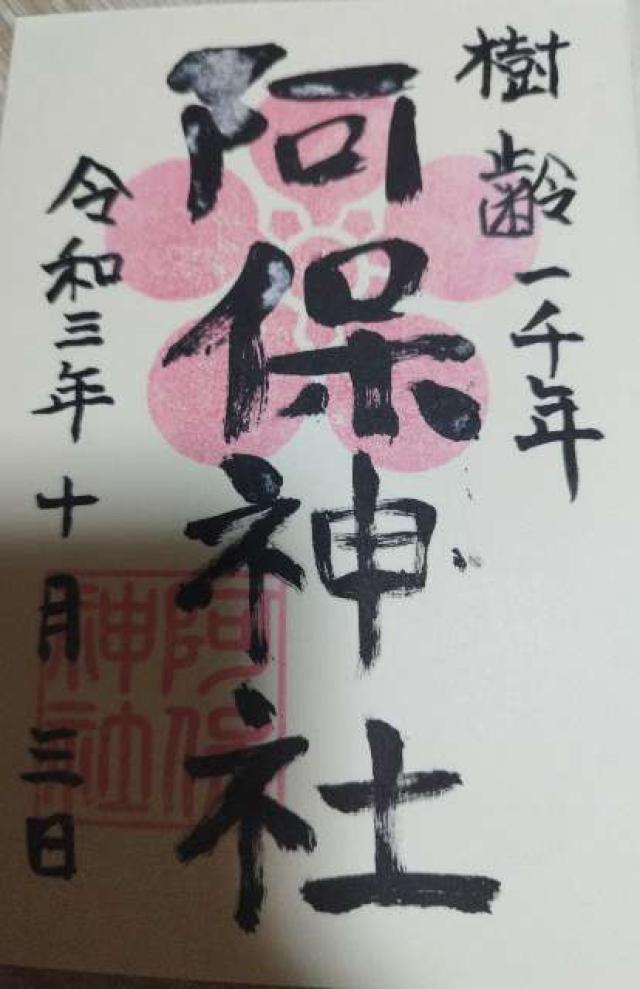 樹齢一千年
阿保神社
令和三年十月三日
阿保
神社